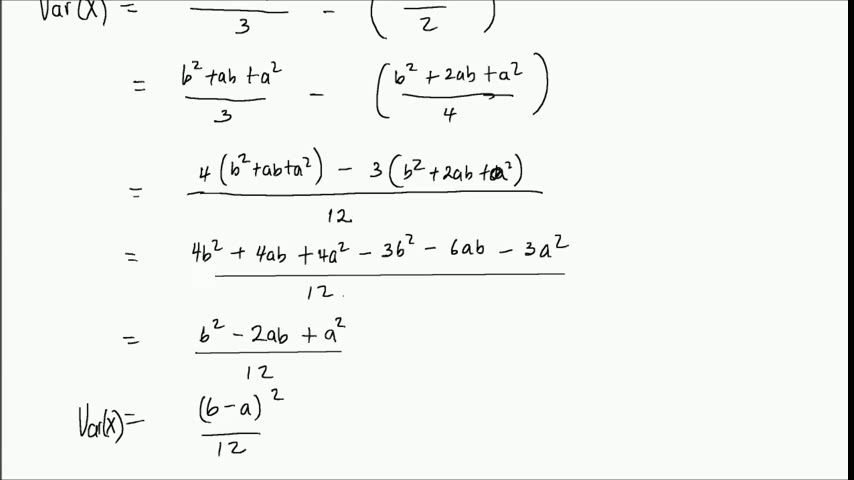 Var(X) = — / 3 - ( — / 2 )
= (b² + ab + a²) / 3 - ( (b² + 2ab + a²) / 4 )
= (4(b² + ab + a²) - 3(b² + 2ab + a²)) / 12
= (4b² + 4ab + 4a² - 3b² - 6ab - 3a²) / 12
= (b² - 2ab + a²) / 12
Var(X) = (b - a)² / 12